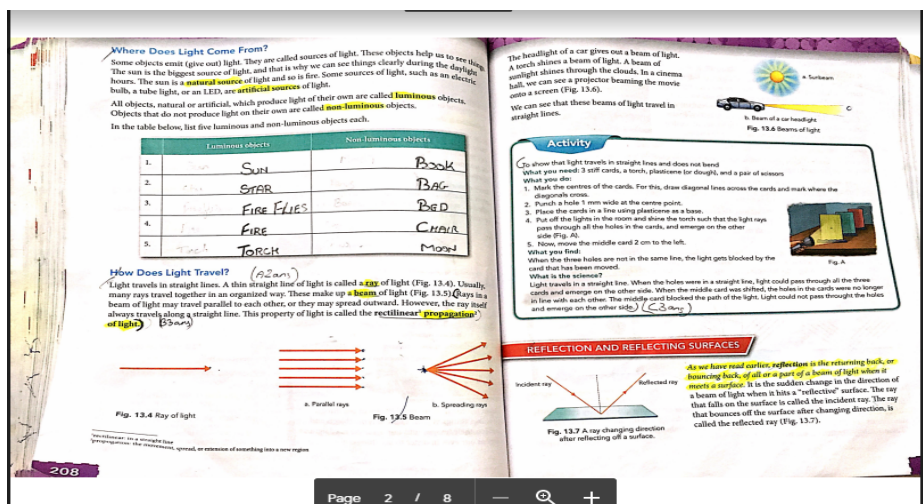 Where Does Light Come From?
Some objects emit (give out) light. They are called sources of light. These objects help us to see things.
The sun is the biggest source of light, and that is why we can see things clearly during the daylight
hours. The sun is a natural source of light and so is fire. Some sources of light, such as an electric
bulb, a tube light, or an LED, are artificial sources of light.
All objects, natural or artificial, which produce light of their own are called luminous objects.
Objects that do not produce light on their own are called non-luminous objects.
In the table below, list five luminous and non-luminous objects each.
Luminous objects Non-luminous objects
1. SUN BOOK
2. STAR BAG
3. FIRE FLIES BED
4. FIRE CHAIR
5. TORCH MOON
How Does Light Travel? (A2ans)
Light travels in straight lines. A thin straight line of light is called a ray of light (Fig. 13.4). Usually,
many rays travel together in an organized way. These make up a beam of light (Fig. 13.5). Rays in a
beam of light may travel parallel to each other, or they may spread outward. However, the ray itself
always travels along a straight line. This property of light is called the rectilinear¹ propagation²
of light. (B3ans)
a. Parallel rays b. Spreading rays
Fig. 13.4 Ray of light Fig. 13.5 Beam
¹rectilinear: in a straight line
²propagation: the movement, spread, or extension of something into a new region
208
The headlight of a car gives out a beam of light.
A torch shines a beam of light. A beam of
sunlight shines through the clouds. In a cinema
hall, we can see a projector beaming the movie
onto a screen (Fig. 13.6).
We can see that these beams of light travel in
straight lines.
a. Sunbeam
b. Beam of a car headlight
Fig. 13.6 Beams of light
Activity
To show that light travels in straight lines and does not bend
What you need: 3 stiff cards, a torch, plasticene (or dough), and a pair of scissors
What you do:
1. Mark the centres of the cards. For this, draw diagonal lines across the cards and mark where the
diagonals cross.
2. Punch a hole 1 mm wide at the centre point.
3. Place the cards in a line using plasticene as a base.
4. Put off the lights in the room and shine the torch such that the light rays
pass through all the holes in the cards, and emerge on the other
side (Fig. A).
5. Now, move the middle card 2 cm to the left.
What you find:
When the three holes are not in the same line, the light gets blocked by the
card that has been moved.
What is the science?
Light travels in a straight line. When the holes were in a straight line, light could pass through all the three
cards and emerge on the other side. When the middle card was shifted, the holes in the cards were no longer
in line with each other. The middle card blocked the path of the light. Light could not pass throught the holes
and emerge on the other side. (C3ans)
Fig. A
REFLECTION AND REFLECTING SURFACES
As we have read earlier, reflection is the returning back, or
bouncing back, of all or a part of a beam of light when it
meets a surface. It is the sudden change in the direction of
a beam of light when it hits a "reflective" surface. The ray
that falls on the surface is called the incident ray. The ray
that bounces off the surface after changing direction, is
called the reflected ray (Fig. 13.7).
Incident ray Reflected ray
Fig. 13.7 A ray changing direction
after reflecting off a surface.
Page 2 / 8